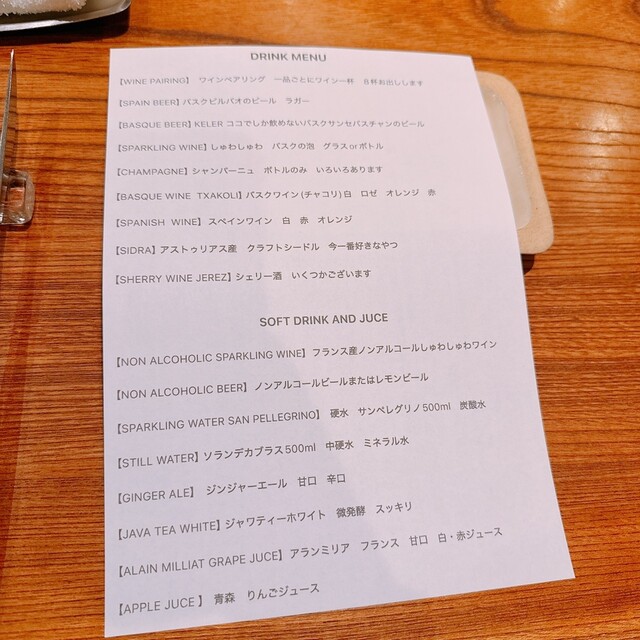 DRINK MENU
【WINE PAIRING】 ワインペアリング 一品ごとにワイン一杯 8杯お出しします
【SPAIN BEER】バスクビルバオのビール ラガー
【BASQUE BEER】KELER ココでしか飲めないバスクサンセバスチャンのビール
【SPARKLING WINE】しゅわしゅわ バスクの泡 グラスorボトル
【CHAMPAGNE】シャンパーニュ ボトルのみ いろいろあります
【BASQUE WINE TXAKOLI】バスクワイン(チャコリ)白 ロゼ オレンジ 赤
【SPANISH WINE】スペインワイン 白 赤 オレンジ
【SIDRA】アストゥリアス産 クラフトシードル 今一番好きなやつ
【SHERRY WINE JEREZ】シェリー酒 いくつかございます
SOFT DRINK AND JUCE
【NON ALCOHOLIC SPARKLING WINE】フランス産ノンアルコールしゅわしゅわワイン
【NON ALCOHOLIC BEER】ノンアルコールビールまたはレモンビール
【SPARKLING WATER SAN PELLEGRINO】 硬水 サンペレグリノ500ml 炭酸水
【STILL WATER】ソランデカブラス500ml 中硬水 ミネラル水
【GINGER ALE】 ジンジャーエール 甘口 辛口
【JAVA TEA WHITE】ジャワティーホワイト 微発酵 スッキリ
【ALAIN MILLIAT GRAPE JUCE】アランミリア フランス 甘口 白・赤ジュース
【APPLE JUCE 】 青森 りんごジュース